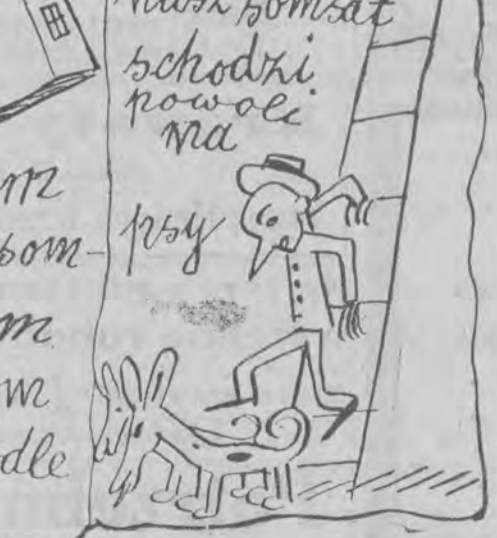 nasz somsat
schodzi
powoli
na
psy
m
som-
m
m
dle